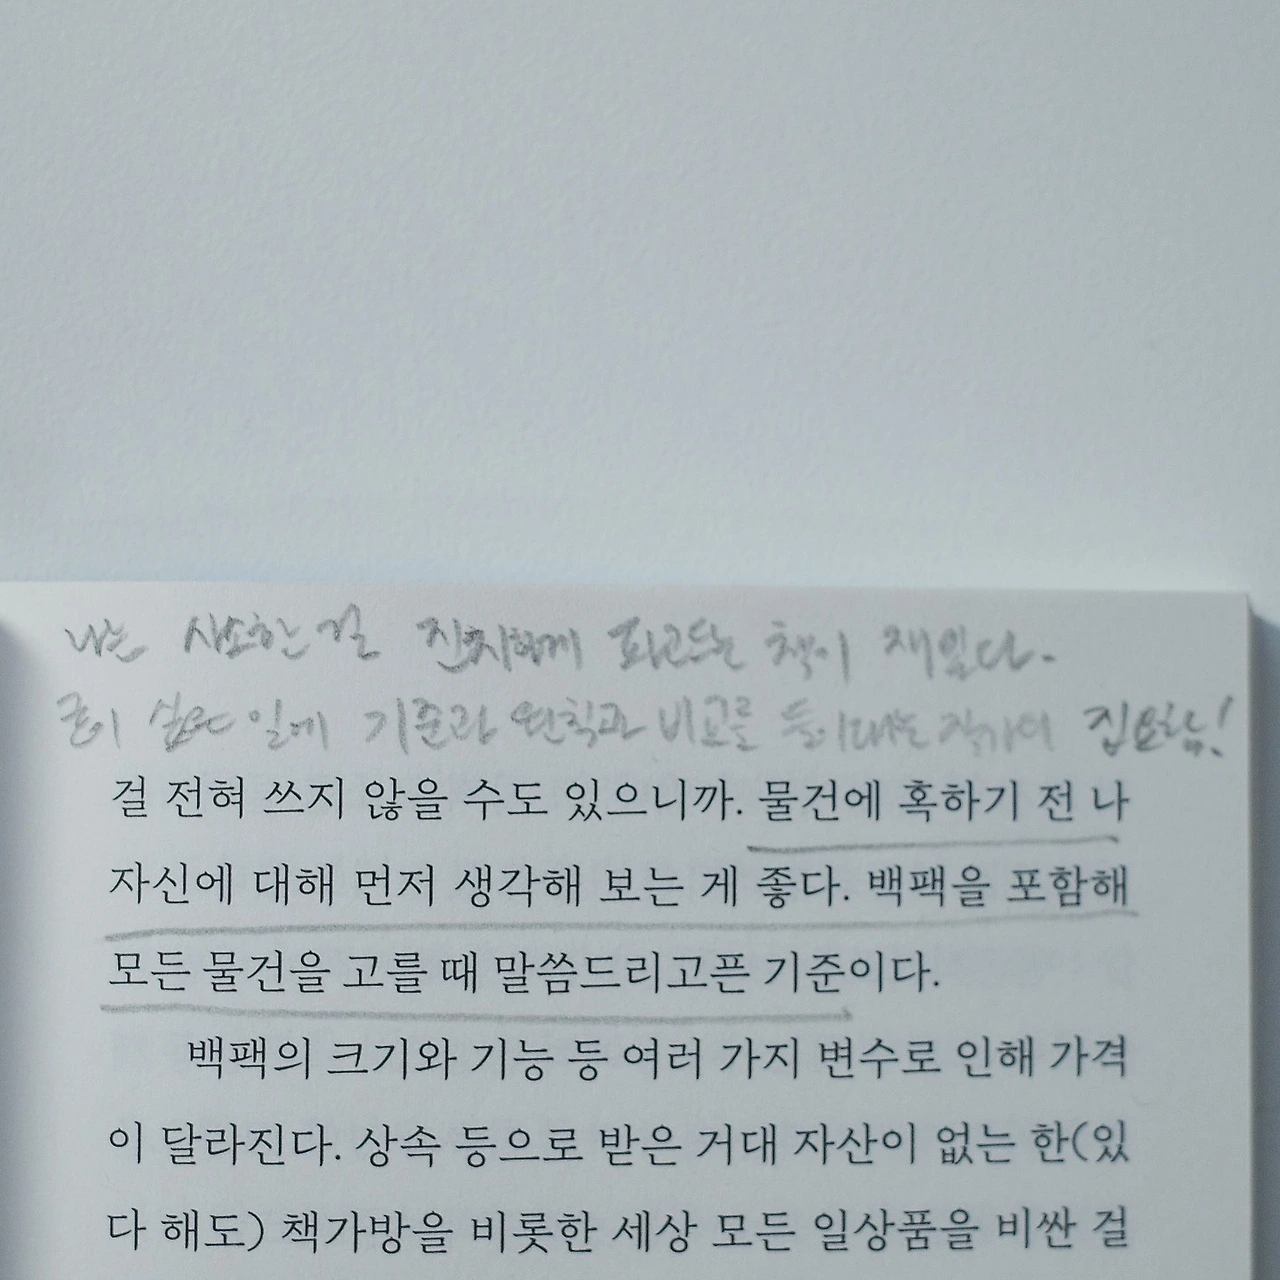 나는 사소한 걸 진지하게 파고드는 책이 재밌다.
굳이 싶은 일에 기준과 원칙과 비교를 들이대는 작가의 집요함!
걸 전혀 쓰지 않을 수도 있으니까. 물건에 혹하기 전 나
자신에 대해 먼저 생각해 보는 게 좋다. 백팩을 포함해
모든 물건을 고를 때 말씀드리고픈 기준이다.
백팩의 크기와 기능 등 여러 가지 변수로 인해 가격
이 달라진다. 상속 등으로 받은 거대 자산이 없는 한(있
다 해도) 책가방을 비롯한 세상 모든 일상품을 비싼 걸